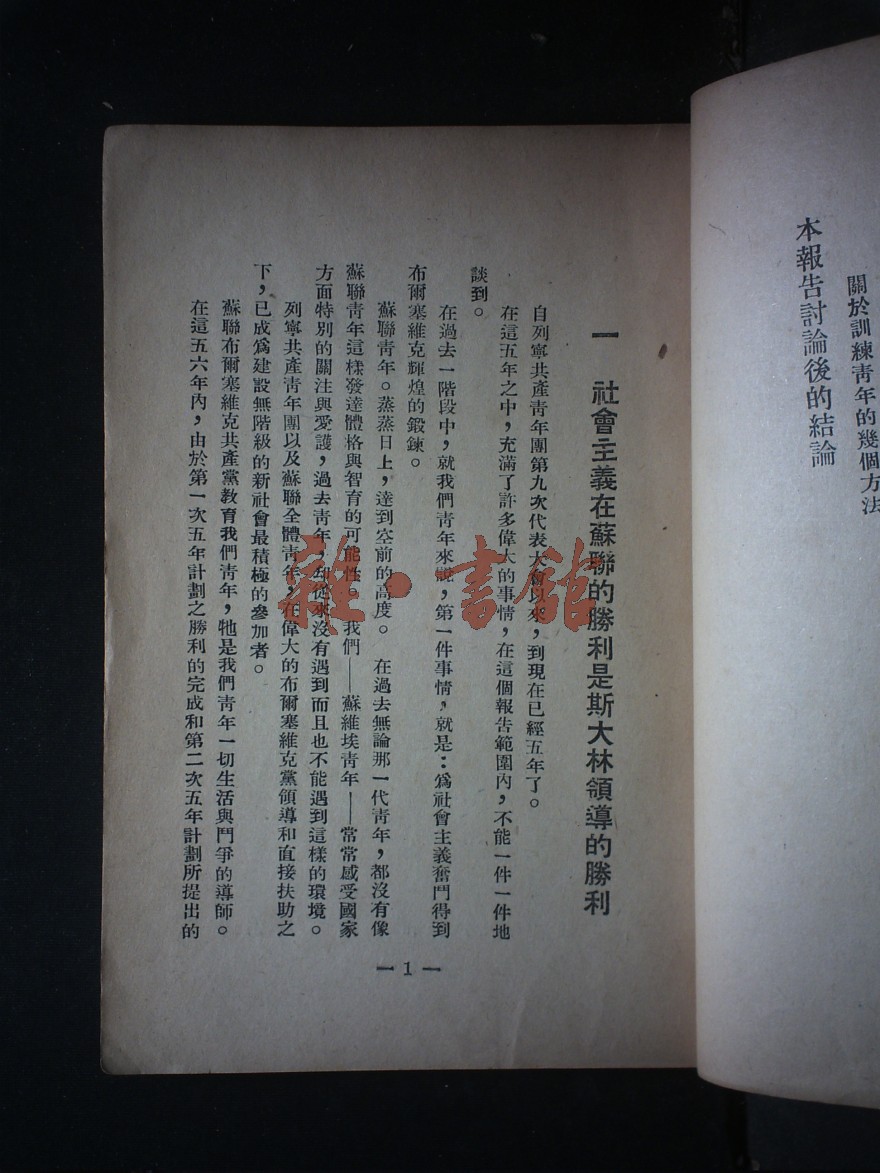 關於訓練靑年的幾個方法
本報告討論後的結論
一 社會主義在蘇聯的勝利是斯大林領導的勝利
自列寧共產靑年團第九次代表大會以來,到現在已經五年了。
在這五年之中,充滿了許多偉大的事情,在這個報告範圍內,不能一件一件地
談到。
在過去一階段中,就我們靑年來說,第一件事情,就是:爲社會主義奮鬥得到
布爾塞維克輝煌的鍛鍊。
蘇聯靑年。蒸蒸日上,達到空前的高度。在過去無論那一代靑年,都沒有像
蘇聯靑年這樣發達體格與智育的可能性。我們——蘇維埃靑年——常常感受國家
方面特別的關注與愛護,過去靑年,却從來沒有遇到而且也不能遇到這樣的環境。
列寧共產靑年團以及蘇聯全體靑年,在偉大的布爾塞維克黨領導和直接扶助之
下,已成爲建設無階級的新社會最積極的參加者。
蘇聯布爾塞維克共產黨教育我們靑年,牠是我們靑年一切生活與鬥爭的導師。
在這五六年內,由於第一次五年計劃之勝利的完成和第二次五年計劃所提出的
— 1 —
雜·書館